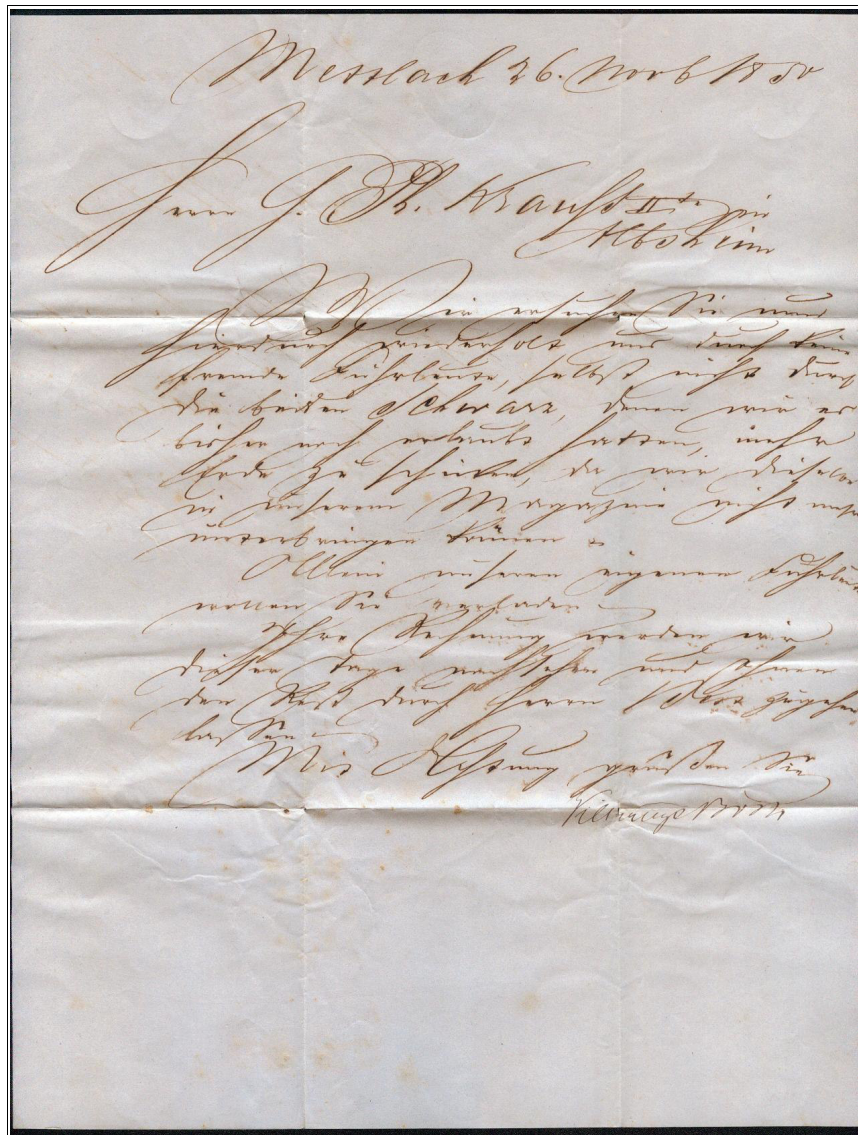 Mettlach 26. Novb 1850
Herrn G. Ph. Krauß II ter in
Albsheim
Wir ersuchen Sie nun
hierdurch wiederholt uns durch keine
fremde Fuhrleute, selbst nicht durch
die beiden Schwarz, denen wir es
bisher noch erlaubt hatten, mehr
Erde zu schicken, da wir dieselbe
in unserem Magazine nicht mehr
unterbringen können
Allein unseren eigenen Fuhrleute
wollen Sie verladen
Ihre Rechnung werden wir
dieser Tage nachsehen und Ihnen
den Rest durch Herrn zugehen
lassen
Mit Achtung grüßen Sie
Villeroy & Boch